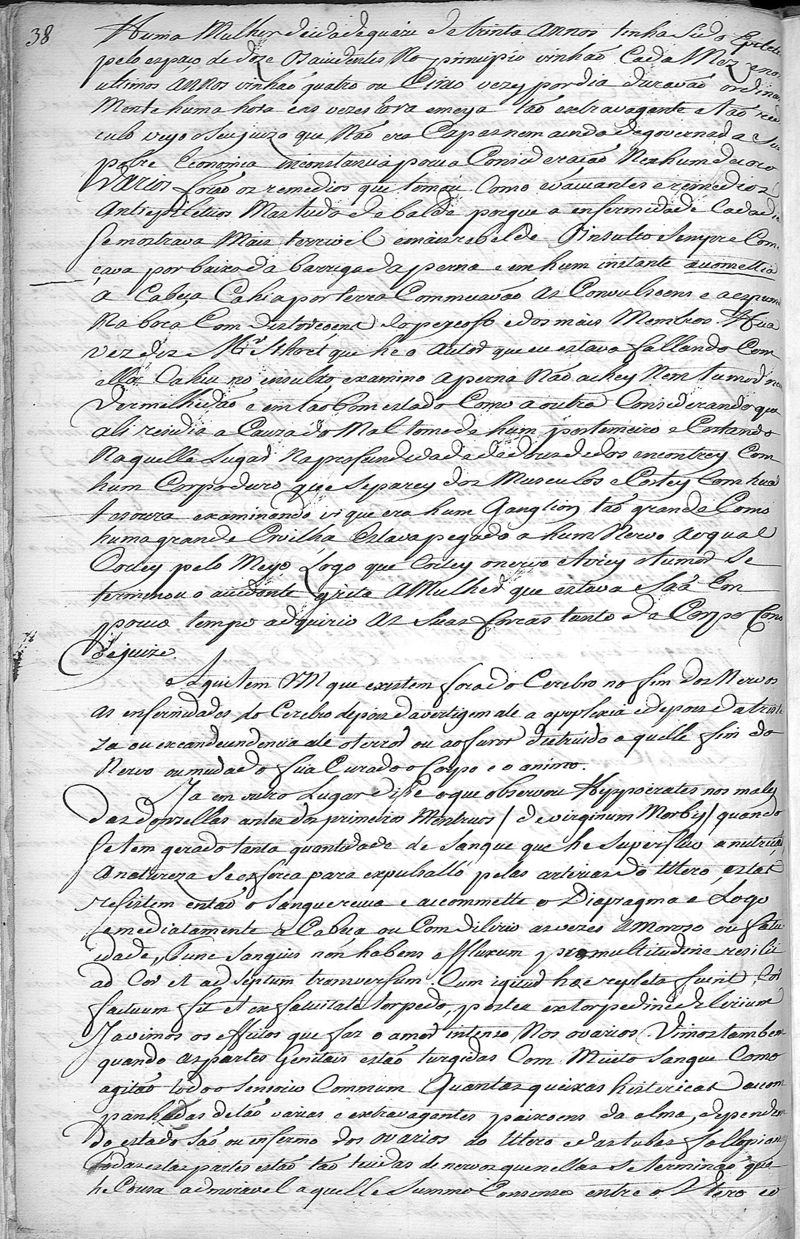 38
Huma Mulher de idade quazi de trinta annos tinha sido Epilet
pelo espaço de doze Os accidentes No principio vinhaõ Cada Mez e nos
ultimos annos vinhaõ quatro ou Cinco vezes por dia duravaõ ordina
Mente huma hora e as vezes hora e meya taõ extravagante e taõ redi
culo vejo o seu juizo que Naõ era Capaz nem ainda de governar a sua
pobre Economia inconstancia pouca Consideraçaõ Nenhum decoro
Varios foraõ os remedios que tomou Como evacuantes e remedios
Antiepileticos Mas tudo de balde porque a enfermidade Cada dia
Se mostrava Mais terrivel e mais rebelde O insulto sempre Com
çava por baixo da barriga da perna e em hum instante acomettia
a Cabeça Cahia por terra Commeçavaõ as Convulsoens e a espuma
Na boca Com distorçoens do pescoso e dos mais Membros. Hua
vez diz Mr. Short que he o autor que eu estava fallando Com
ella, Cahiu no insulto examino a perna Naõ achey Nem tumor nem
Vermelhidaõ e em taõ bom estado Como a outra Considerando que
ali residia a Cauza do Mal tomey hum postemeiro e Cortando
Naquelle Lugar Na profundidade de dous dedos encontrey Com
hum Corpo duro que separey dos Musculos e Cortey Com hua
tesoura examinando vi que era hum Ganglion, taõ grande Como
huma grande Ervilha Estava pegado a hum Nervo Ao qual
Cortey pelo Meyo Logo que Cortey o nervo e tirey o tumor se
terminou o accidente grita a Mulher que estava Saã Em
pouco tempo adquirio as suas forças tanto do Corpo Como
do juizo
Aqui tem VM que existem fora do Cerebro no fim dos Nervos
as enfermidades do Cerebro depois da vertigem ate a apoplexia e depois da triste
za ou excandecencia ate o terror ou ao furor destruido aquelle fim do
Nervo ou mudado fica Curado o Corpo e o animo.
Ja em outro Lugar disse o que observou Hyppocrates nos males
das donzellas antes dos primeiros Menstruos / de virginum Morbis / quando
Se tem gerado tanta quantidade de Sangue que he Superfluo a nutriçaõ
A natureza se esforça para expulsallo pelas arterias do Utero, estas
resistem entaõ o sangue recua e accommette o Diapragma e Logo
emediatamente a Cabeça ou Com delirio as vezes Amoroso ou fatu
idade, Tunc sanguis non habens effluxum pro multitudine resilit
ad Cor et ad septum transversum Cum igitur hæc repleta fuerint, Cor
fatuum fit et ex fatuitate torpedo, postea ex torpedine delirium
Ja vimos os effeitos que faz o amor intenso Nos ovarios. Vimos tambem
quando as partes Genitais estaõ turgidas Com Muito Sangue Como
agitaõ todo o sensorio Commum Quantas queixas histericas acom
panhadas de taõ varias e extravagantes paixoens da alma, dependem
do estado saõ ou infermo dos ovarios do Utero e das tubas fallopianas
todas estas partes estaõ taõ tecidas de nervos que nellas se terminaõ que
he Couza admiravel aquelle Summo Consenso entre o Utero e o